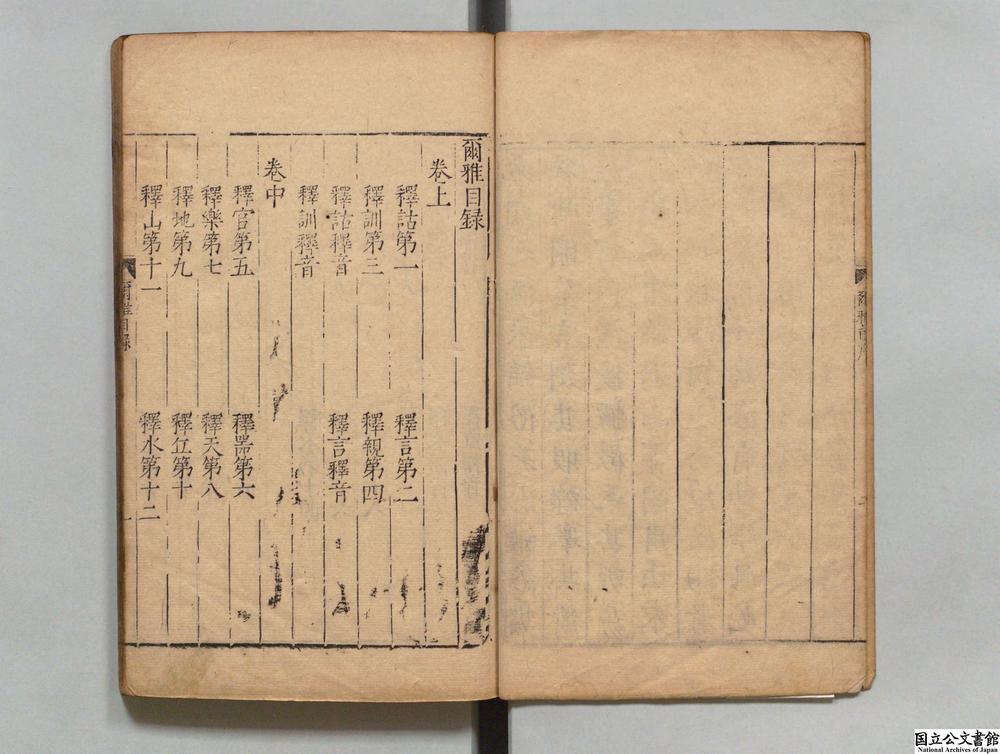 爾雅目録
卷上
釋詁第一 釋言第二
釋訓第三 釋親第四
釋詁釋音 釋言釋音
釋訓釋音
卷中
釋官第五 釋噐第六
釋樂第七 釋天第八
釋地第九 釋丘第十
釋山第十一 釋水第十二
爾雅目錄
国立公文書館
National Archives of Japan